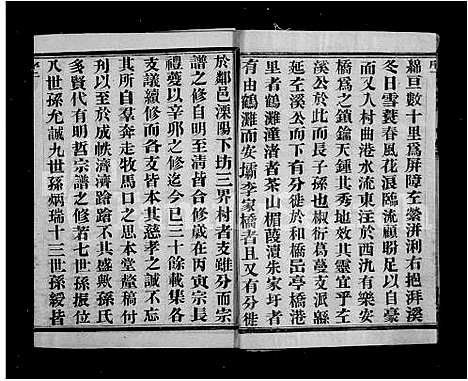 序
綿亘數十里為屏障左縈洴浰右抱湃溪
冬日雪蓑春風花浪臨流顧盼足以自豪
而又入村曲港水流東注於西氿有樂安
橋為之鎖鑰天鍾其秀地效其靈宜乎左
溪公於此長子孫也椒衍葛蔓支派蕃
延左溪公而下有分徙於尚岳亭橋港
里者鶴灘潼渚者茶山楣葭瀆朱家圩者
有由鶴灘而安壩李家橋者且又有分徙
於鄰邑溧陽下坊三界村者支雖分而宗
譜之修自明至清皆合修歲在丙寅宗長
禮夔以辛邜之修迄今已三十餘載集各
支議續修而各支皆本其慈孝之誠不忘
所自羣奔走牧馬口之思本堂釐稿付
刊以至於成帙濟濟蹌蹌不其盛歟孫氏
多賢代有明哲宗譜之修若七世孫振位
八世孫允誠九世孫炳瑞十三世孫綬皆
序二